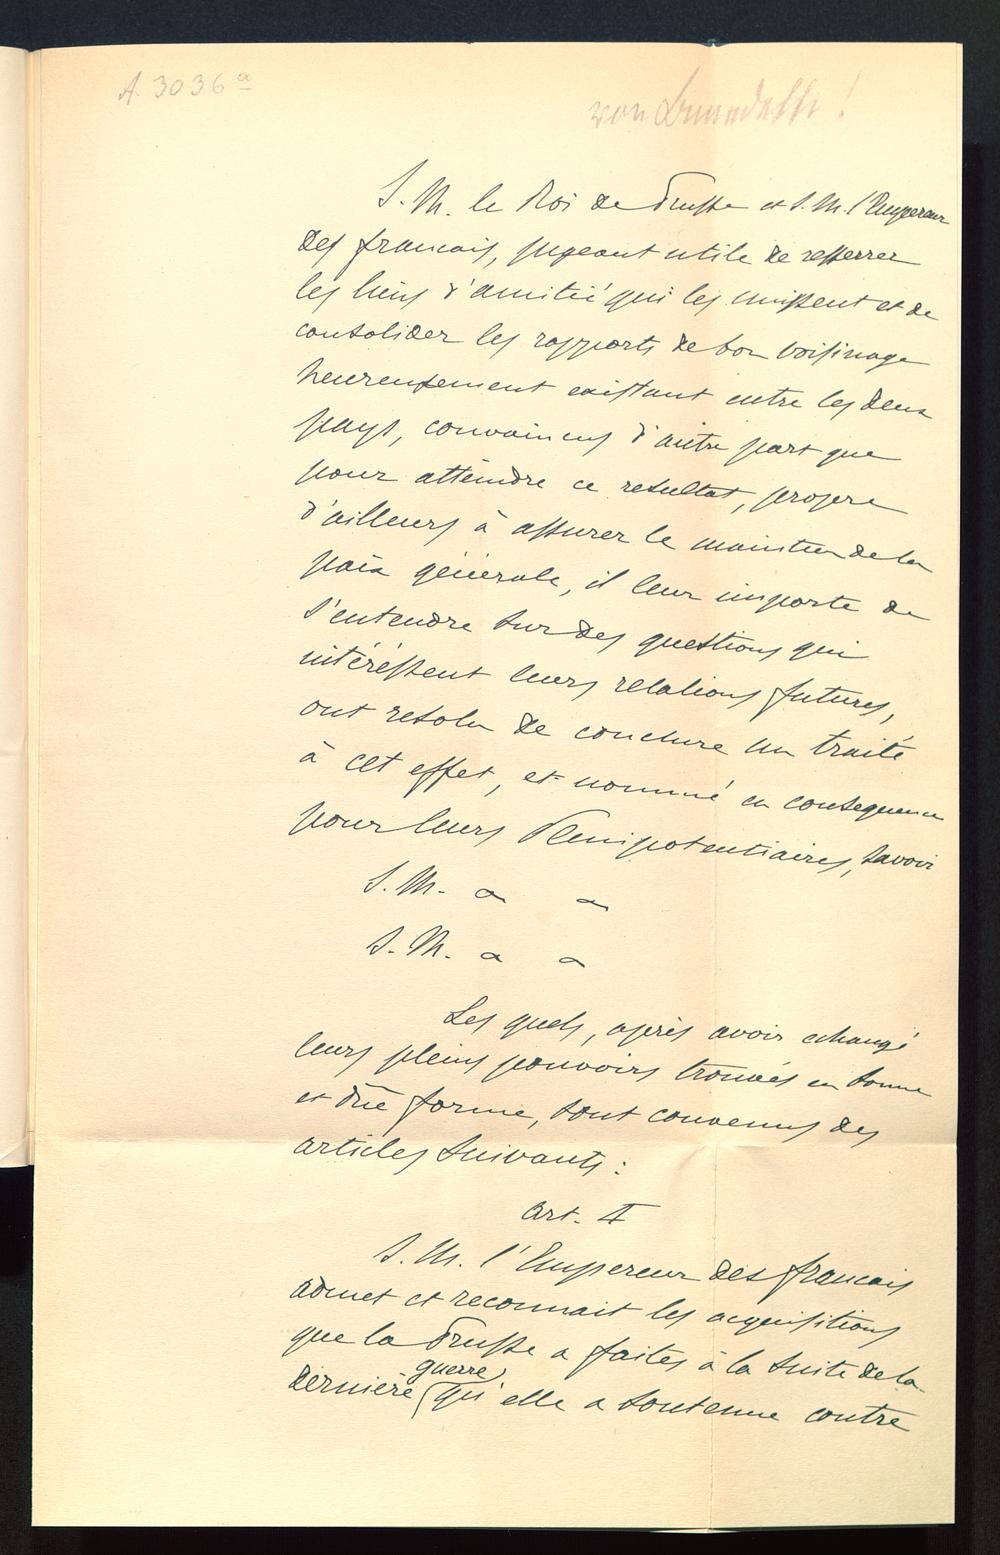 A. 3036 a
von Benedetti!
S. M. le Roi de Prusse et S. M. l'Empereur
des francais, jugeant utile de resserrer
les liens d'amitié qui les unissent et de
consolider les rapports de bon voisinage
heureusement existant entre les deux
pays, convaincus d'autre part que
pour atteindre ce resultat, propre
d'ailleurs à assurer le maintien de la
paix générale, il leur importe de
s'entendre sur des questions qui
intéressent leurs relations futures,
ont resolu de conclure un traité
à cet effet, et nommé en consequence
pour leurs Plenipotentiaires, savoir
S. M. a a
S. M. a a
Les quels, après avoir echangé
leurs pleins pouvoirs trouvés en bonne
et düe forme, sont convenus des
articles suivants:
art. I
S. M. l'Empereur des francais
admet et reconnait les acquisitions
que la Prusse a faites à la suite de la
dernière guerre qu'elle a soutenue contre